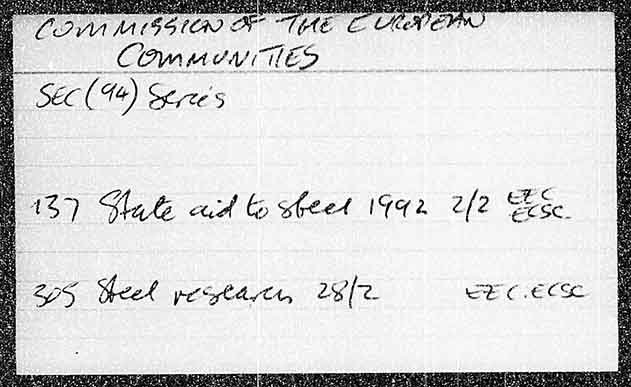 COMMISSION OF THE EUROPEAN
COMMUNITIES
SEC (94) Series
137 State aid to steel 1992 2/2 EEC
ECSC
305 Steel research 28/2 EEC. ECSC